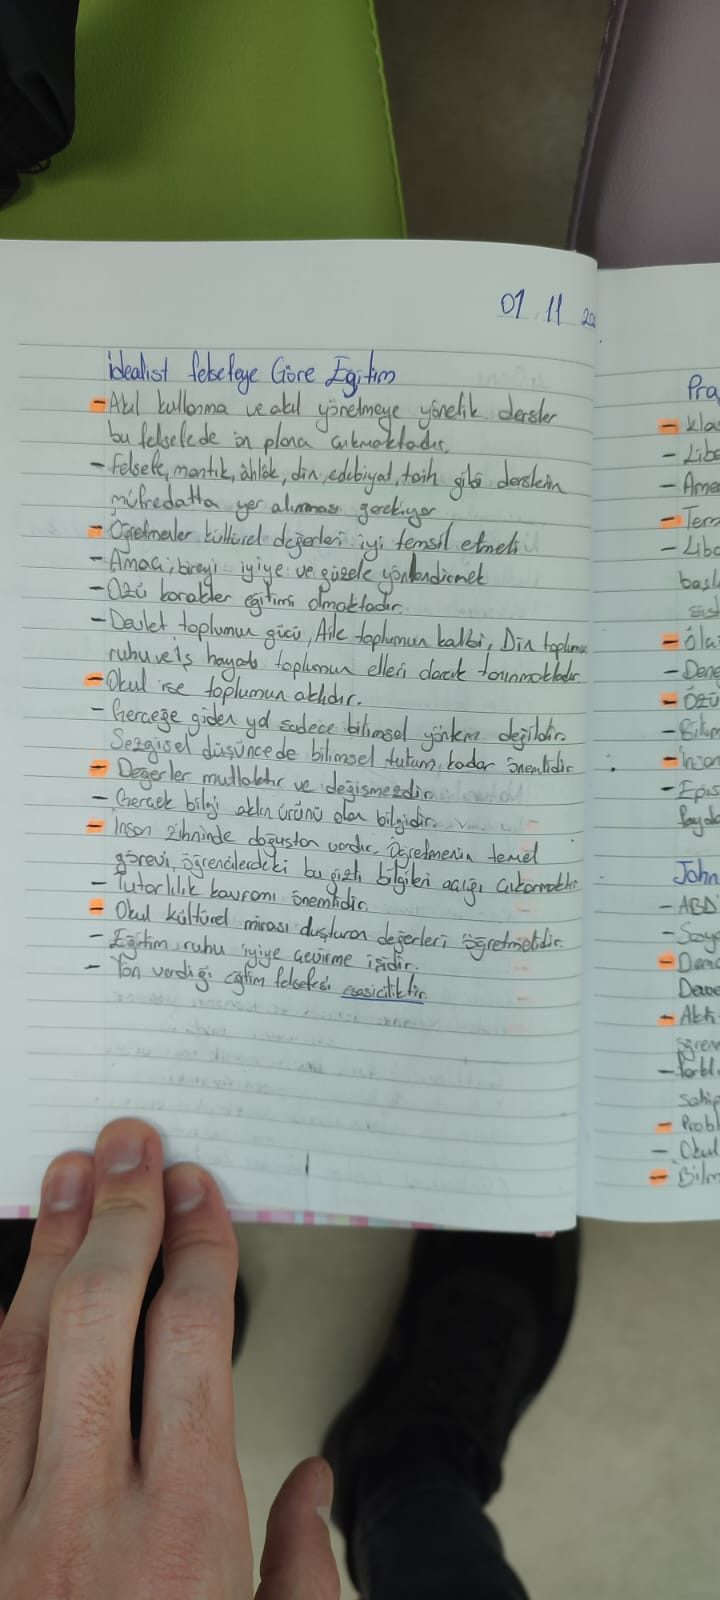 01 11 20
İdealist felsefeye Göre Eğitim
- Akıl kullanma ve akıl yönetmeye yönelik dersler
bu felsefede ön plana çıkmaktadır.
- Felsefe, mantık, ahlâk, din, edebiyat, tarih gibi derslerin
müfredatta yer alınması gerekiyor
- Öğretmenler kültürel değerleri iyi temsil etmeli
- Amacı; bireyi iyiye ve güzele yönlendirmek
- Özü karakter eğitimi olmaktadır.
- Devlet toplumun gücü, Aile toplumun kalbi, Din toplumu
ruhu ve iş hayatı toplumun elleri olarak tanınmaktadır
- Okul ise toplumun aklıdır.
- Gerçeğe giden yol sadece bilimsel yöntem değildir.
Sezgisel düşüncede bilimsel tutum kadar önemlidir
- Değerler mutlaktır ve değişmezdir
- Gerçek bilgi aklın ürünü olan bilgidir.
- İnsan zihninde doğuştan vardır. Öğretmenin temel
görevi, öğrencilerdeki bu gizli bilgileri açığı çıkarmaktır
- Tutarlılık kavramı önemlidir.
- Okul kültürel mirası oluşturan değerleri öğretmelidir.
- Eğitim ruhu iyiye çevirme işidir.
- Yön verdiği eğitim felsefesi esasiciliktir.
Pra
- Klas
- Libe
- Ame
- Tem
- Libe
başl
sist
- Ola
- Dene
- Özü
- Bilim
- İnsan
- Epis
fayda
John
- ABD
- Sosy
- Demo
Dewe
- Akti
öğren
sahip
- Probl
- Okul
- Bilim